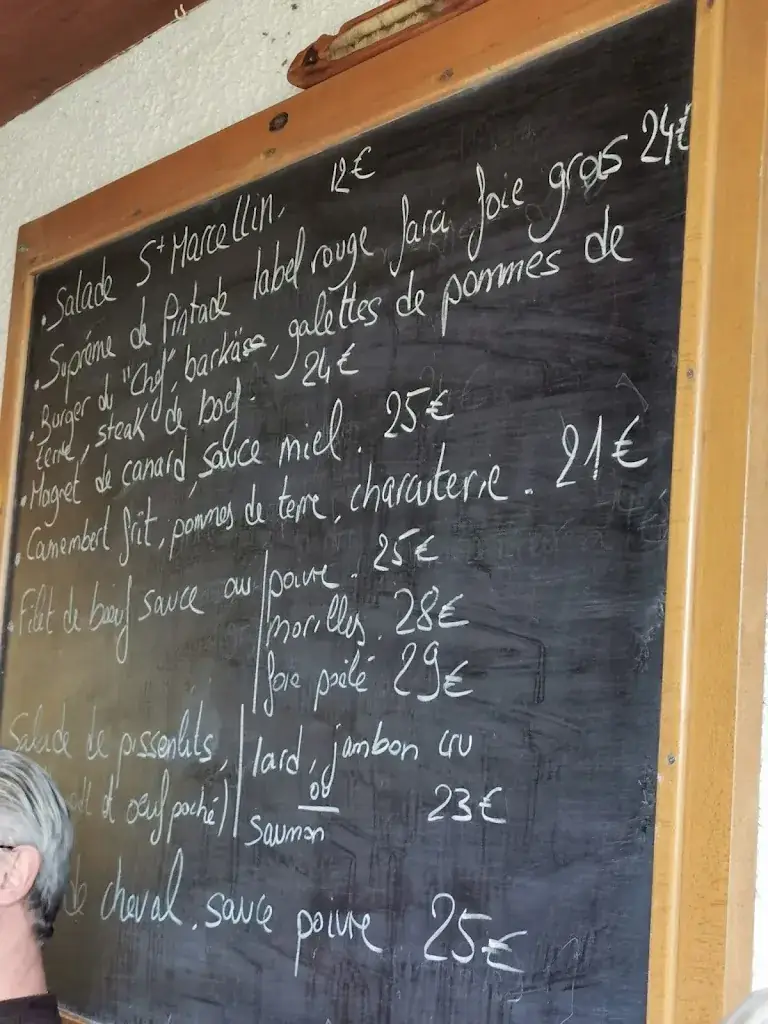 • Salade St Marcellin, 12€
• Suprême de Pintade label rouge farci foie gras 24€
• Burger du "Chef", barkäse, galettes de pommes de
terre, steak de boeuf. 24€
• Magret de canard, sauce miel. 25€
• Camembert frit, pommes de terre, charcuterie. 21€
• Filet de boeuf sauce au poivre. 25€
morilles. 28€
foie poêlé 29€
Salade de pissenlits, lard, jambon cru
et oeuf poché) ou 23€
saumon
de cheval, sauce poivre 25€